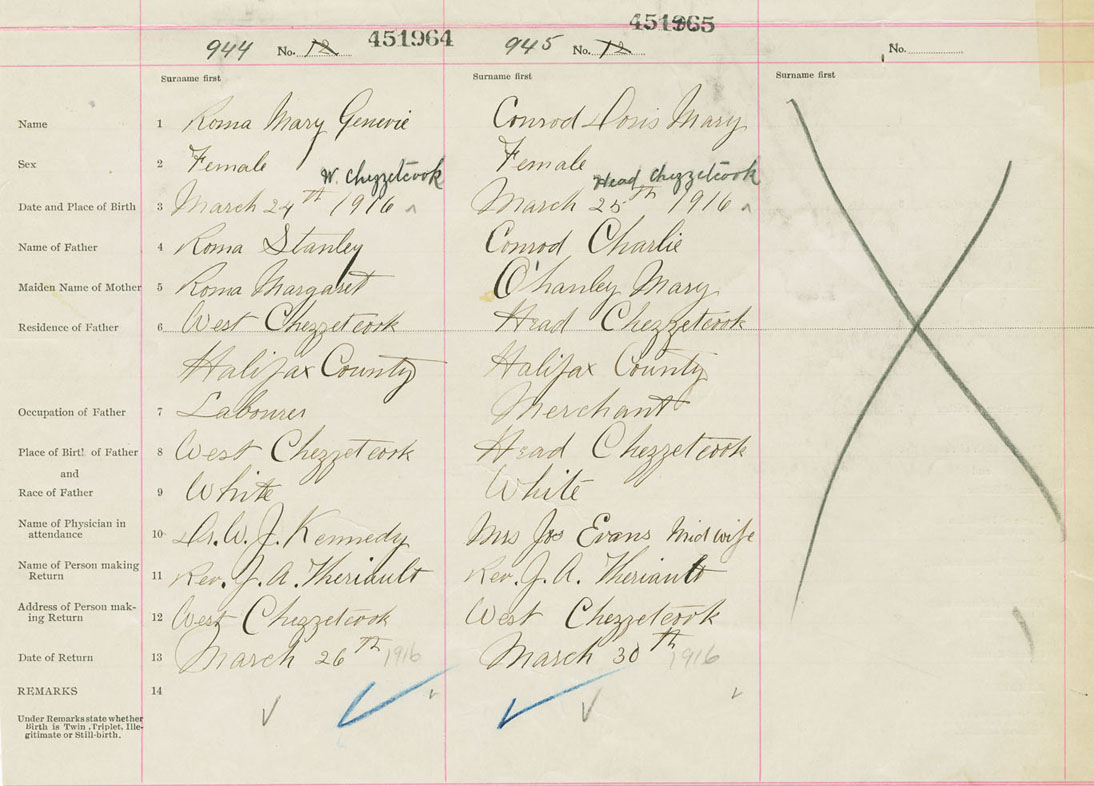 944 No. 12 451964 945 No. 12 451965 No.
Surname first Surname first Surname first
Name 1 Roma Mary Genevie Conrod Doris Mary
Sex 2 Female Female
W. Chezzetcook Head Chezzetcook
Date and Place of Birth 3 March 24th 1916 ^ March 25th 1916 ^
Name of Father 4 Roma Stanley Conrod Charlie
Maiden Name of Mother 5 Roma Margaret O'hanley Mary
Residence of Father 6 West Chezzetcook Head Chezzetcook
Halifax County Halifax County
Occupation of Father 7 Labourer Merchant
Place of Birth of Father 8 West Chezzetcook Head Chezzetcook
and
Race of Father 9 White White
Name of Physician in
attendance 10 Dr. W. J. Kennedy Mrs Jos Evans Midwife
Name of Person making
Return 11 Rev. J. A. Theriault Rev. J. A. Theriault
Address of Person mak-
ing Return 12 West Chezzetcook West Chezzetcook
Date of Return 13 March 26th 1916 March 30th 1916
REMARKS 14
Under Remarks state whether
Birth is Twin, Triplet, Ille-
gitimate or Still-birth.